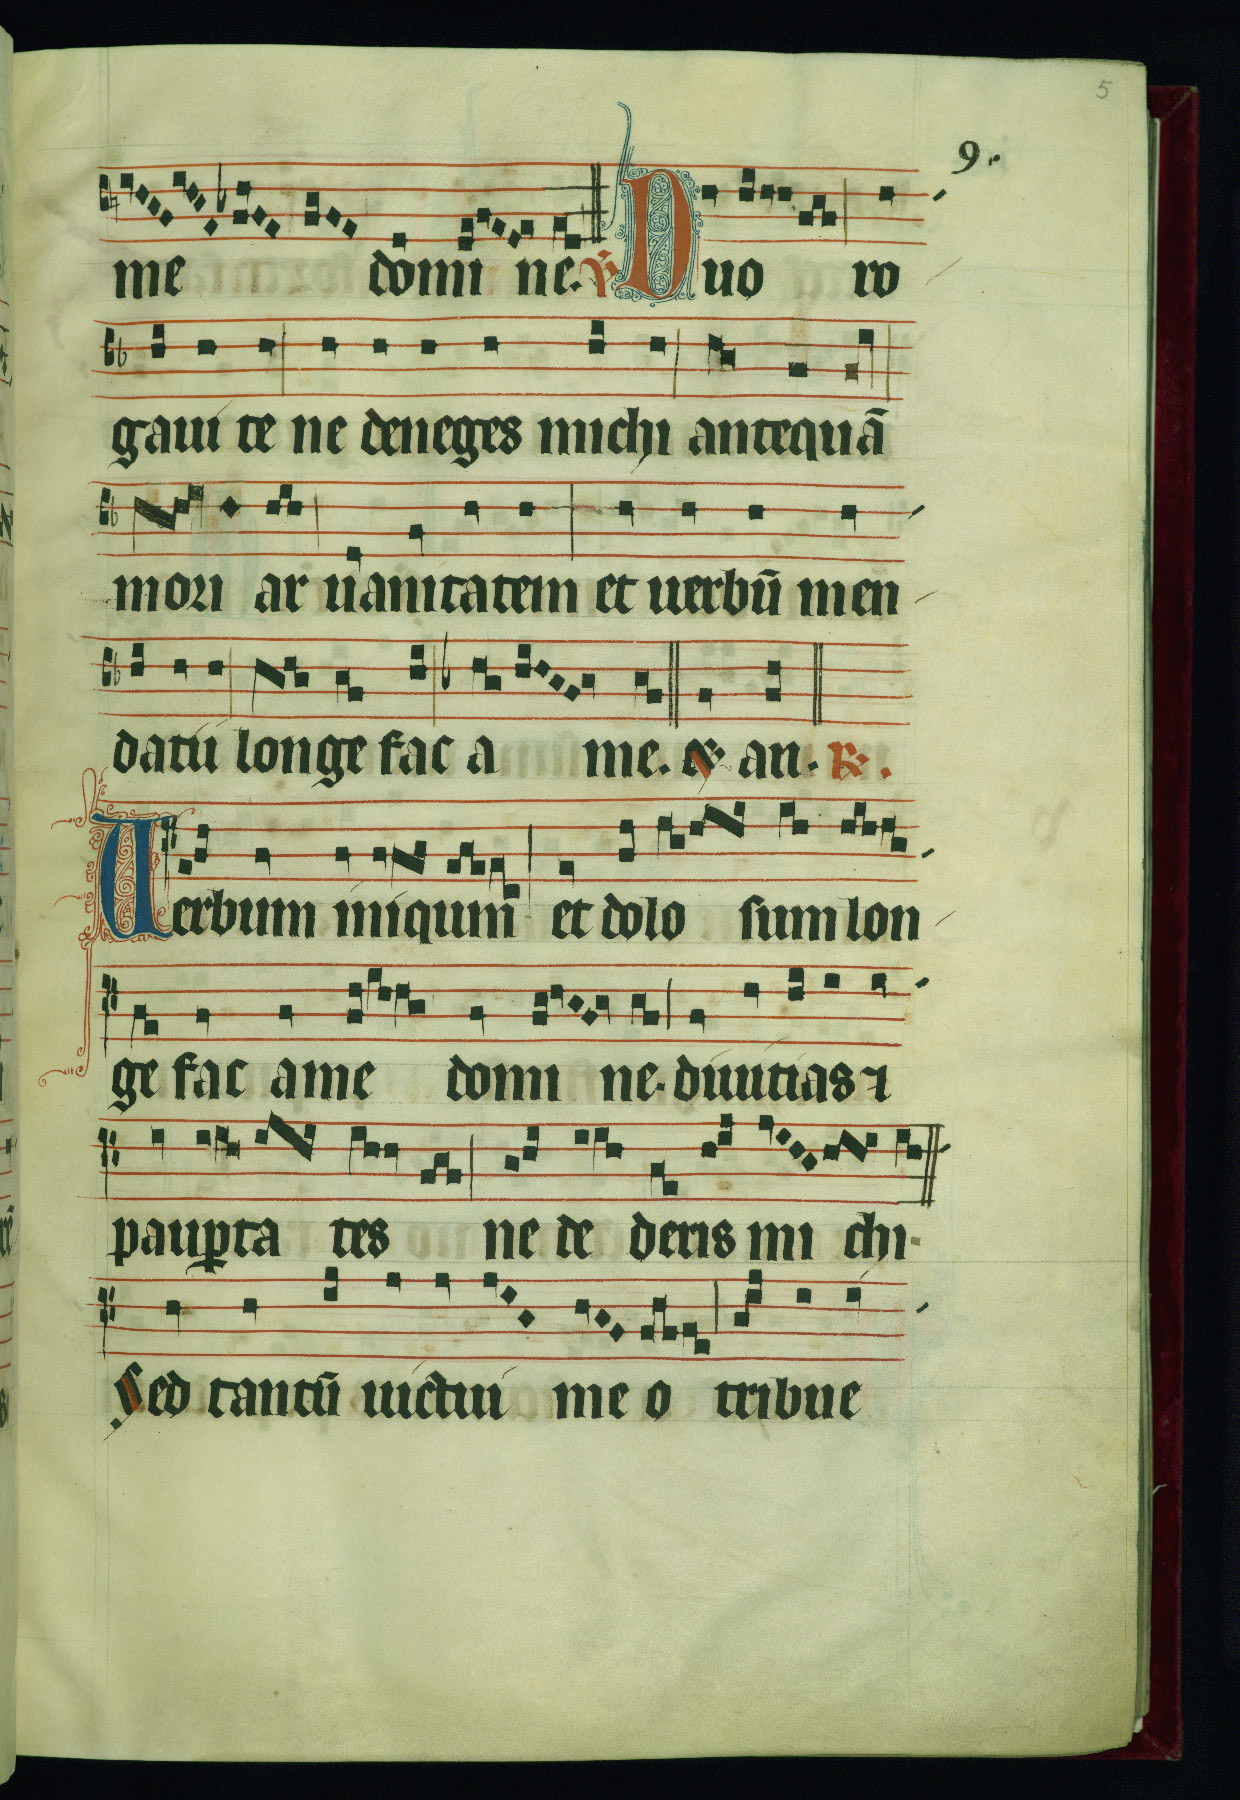 5
9.
me domi ne. V Duo ro
gaui te ne deneges michi antequā
mori ar uanitatem et uerbū men
datū longe fac a me. et an. R.
Uerbum iniquum et dolo sum lon
ge fac a me domi ne. diuitias ⁊
paup̱ta tes ne de deris mi chi.
Sed tantū uictui me o tribue